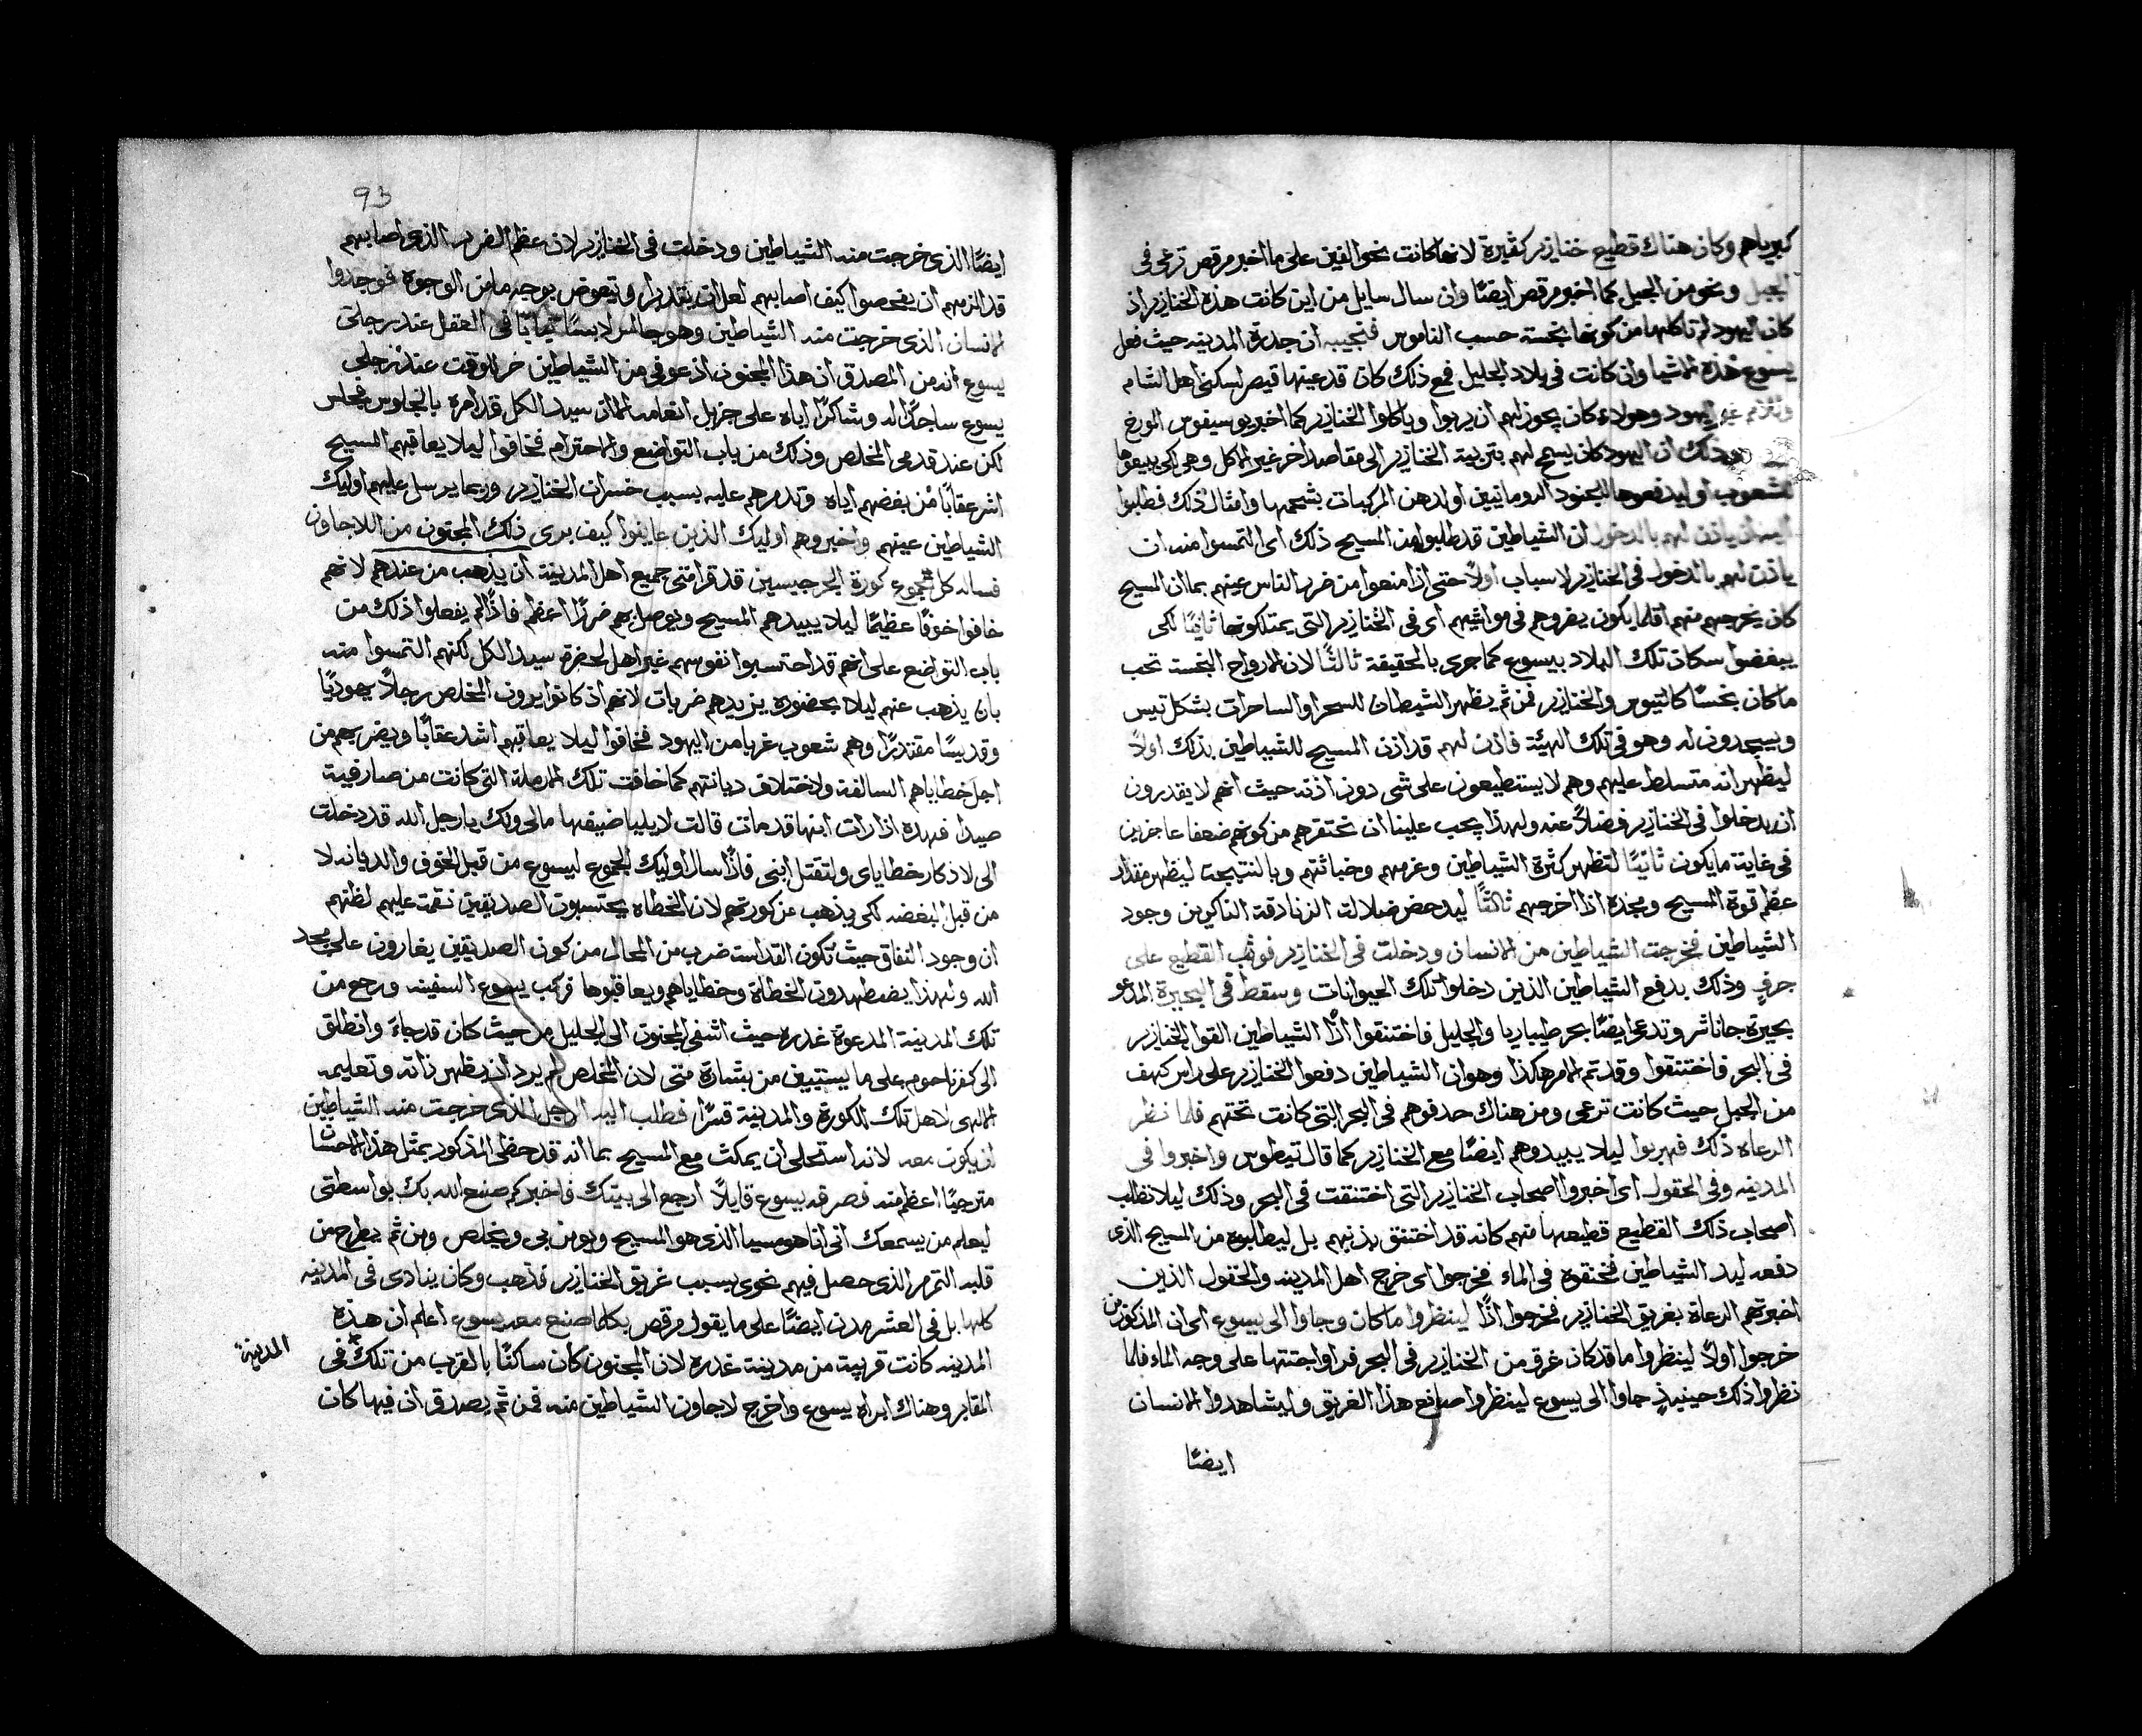 كبرياهم وكان هناك قطيع خنازير كثيرة لانها كانت نحو الفين على ما اخبر مرقص ترعى فى
الجبل ونحو من الجبل كما اخبر مرقص ايضًا وان سال سايل من اين كانت هذه الخنازير اذ
كان اليهود لم تاكلها من كونها نجسة حسب الناموس فنجيبه ان جدرة المدينه حيث فعل
يسوع هذه الاشيا وان كانت فى بلاد الجليل فمع ذلك كان قد عينها قيصر لسكنى اهل الشام
غير اليهود وهولاء كان يجوز لهم ان يربوا وياكلوا الخنازير كما اخبر يوسيفوس المورخ
وذلك ان اليهود كان يسمح لهم بتربية الخنازير الى مقاصد اخر غير الاكل وهى لكى يبيعوها
للشعوب او ليدفعوها للجنود الرومانيين او لدهن المركبات بشحمها وامثال ذلك فطلبوا
اليه ان ياذن لهم بالدخول ان الشياطين قد طلبوا من المسيح ذلك اى التمسوا منه ان
ياذن لهم بالدخول فى الخنازير لاسباب اولاً حتى اذا منعوا من ضرر الناس عينهم بما ان المسيح
كان يخرجهم منهم اقلما يكون يضروهم فى مواشيهم اى فى الخنازير التى يمتلكونها ثانيًا لكى
يبغضوا سكان تلك البلاد بيسوع كما جرى بالحقيقة ثالثًا لان الارواح النجسة تحب
ما كان نجسًا كالتيوس والخنازير فمن ثم يظهر الشيطان للسحرا والساحرات بشكل تيس
ويسجدون له وهو فى تلك الهيئة فاذن لهم قد اذن المسيح للشياطين بذلك اولاً
ليظهر انه متسلط عليهم وهم لا يستطيعون على شى دون اذنه حيث انهم لا يقدرون
ان يدخلوا فى الخنازير فضلاً عنه ولهذا يجب علينا ان نحتقرهم من كونهم ضعفا عاجزين
فى غاية ما يكون ثانيًا لتظهر كثرة الشياطين وعزمهم وخباثتهم وبالنتيجة ليظهر مقدار
عظم قوة المسيح ومجده اذا اخرجهم ثالثًا ليدحض ضلالت الزنادقة الناكرين وجود
الشياطين فخرجت الشياطين من الانسان ودخلت فى الخنازير فوثب القطيع على
جرف وذلك بدفع الشياطين الذين دخلوا تلك الحيوانات وسقط فى البحيرة المدعو
بحيرة جاناشر وتدعى ايضًا بحر طيباريا والجليل فاختنقوا اذًا الشياطين القوا الخنازير
فى البحر فاختنقوا وقد تم الامر هكذا وهو ان الشياطين دفعوا الخنازير على راس كهف
من الجبل حيث كانت ترعى ومن هناك حدفوهم فى البحر التى كانت تحتهم فلما نظر
الرعاه ذلك فهربوا ليلا يبيدوهم ايضًا مع الخنازير كما قال تيطوس واخبروا فى
المدينه وفى الحقول اى اخبروا اصحاب الخنازير التى اختنقت فى البحر وذلك ليلا تطلب
اصحاب ذلك القطيع قطيعها منهم كانه قد اختنق بذنبهم بل ليطلبوه من المسيح الذى
دفعه ليد الشياطين فخنقوه فى الماء فخرجوا اى خرج اهل المدينه والحقول الذين
اخبرتهم الرعاة بغريق الخنازير فخرجوا اذًا لينظروا ما كان وجاوا الى يسوع اى ان المذكورين
خرجوا اولاً لينظروا ما قد كان غرق من الخنازير فى البحر فراوا جثتها على وجه الماء فلما
نظروا ذلك حينيذٍ جاوا الى يسوع لينظروا صانع هذا الغريق وليشاهدوا الانسان
ايضًا
93
ايضًا الذى خرجت منه الشياطين ودخلت فى الخنازير لان عظم الضرر الذى اصابهم
قد الزمهم ان يفحصوا كيف اصابهم لعل ان يقدروا وتيعوض بوجه ما من الوجوه فوجدوا
الانسان الذى خرجت منه الشياطين وهو جالس لابسًا ثيابًا فى العقل عند رجلى
يسوع انه من المصدق ان هذا المجنون اذ عوفى من الشياطين خر للوقت عند رجلى
يسوع ساجدًا له وشاكرًا اياه على جزيل انعامه الا ان سيد الكل قد امره بالجلوس فجلس
لكن عند قدمى المخلص وذلك من باب التواضع والاحترام فخافوا ليلا يعاقبهم المسيح
اشر عقابًا من بغضهم اياه وتدمرهم عليه بسبب خسران الخنازير وربما يرسل عليهم اوليك
الشياطين عينهم واخبروهم اوليك الذين عاينوا كيف برى ذلك المجنون من اللاجاون
فساله كل مجموع كورة الجرجيسين قد قرا متى جميع اهل المدينة ان يذهب من عندهم لانهم
خافوا خوفًا عظيمًا ليلا يبيدهم المسيح ويوصل بهم ضررًا اعظم فاذًا لم يفعلوا ذلك من
باب التواضع على انهم قد احتسبوا نفوسهم غير اهل لحضرة سيد الكل لكنهم التمسوا منه
بان يذهب عنهم ليلا بحضوره يزيدهم ضربات لانهم اذ كانوا يرون المخلص رجلاً يهوديًا
وقديسًا مقتدرًا وهم شعوب غربا من اليهود فخافوا ليلا يعاقبهم اشد عقابًا ويضربهم من
اجل خطاياهم السالفة ولاختلاف ديانتهم كما خافت تلك الارملة التى كانت من صارفية
صيدا فهذه اذا رات ابنها قد مات قالت لايليا ضيفها مالى ولك يا رجل الله قد دخلت
الى لاذكار خطاياى ولتقتل ابنى فاذًا سال اوليك الجموع ليسوع من قبل الخوف والديانه لا
من قبل البغضه لكى يذهب عن كورتهم لان الخطاه يحتسبون الصديقين نقمت عليهم لظنهم
ان وجود النفاق حيث تكون القداسه ضرب من المحال من كون الصديقين يغارون على مجد
الله ولهذا يضطهدون الخطاة وخطاياهم ويعاقبوها فركب يسوع السفينه ورجع من
تلك المدينة المدعوة غدره حيث اشفى المجنون الى الجليل من حيث كان قد جاءَ وانطلق
الى كفرناحوم على ما يستبين من بشارة متى لان المخلص لم يرد ان يظهر ذاته وتعليمه
الالهى لاهل تلك الكورة والمدينة قسرًا فطلب اليه الرجل الذى خرجت منه الشياطين
ان يكون معه لانه استحلى ان يمكث مع المسيح بما انه قد حظى المذكور بمثل هذا الاحسان
مترجيًا اعظم منه فصرفه يسوع قايلاً ارجع الى بيتك فاخبر كم صنع الله بك بواسطتى
ليعلم من يسمعك انى انا هو مسيا الذى هو المسيح ويومن بى ويخلص ومن ثم يطرح من
قلبه التمرمر الذى حصل فيهم نحوى بسبب غريق الخنازير فذهب وكان ينادى فى المدينه
كلها بل فى العشر مدن ايضًا على ما يقول مرقص بكلما صنع معه يسوع اعلم ان هذه
المدينه كانت قريبة من مدينة غدره لان المجنون كان ساكنًا بالقرب من تلك فى
المدينة
المقابر وهناك ابراه يسوع واخرج لاجاون الشياطين منه فمن ثم يصدق ان فيها كان